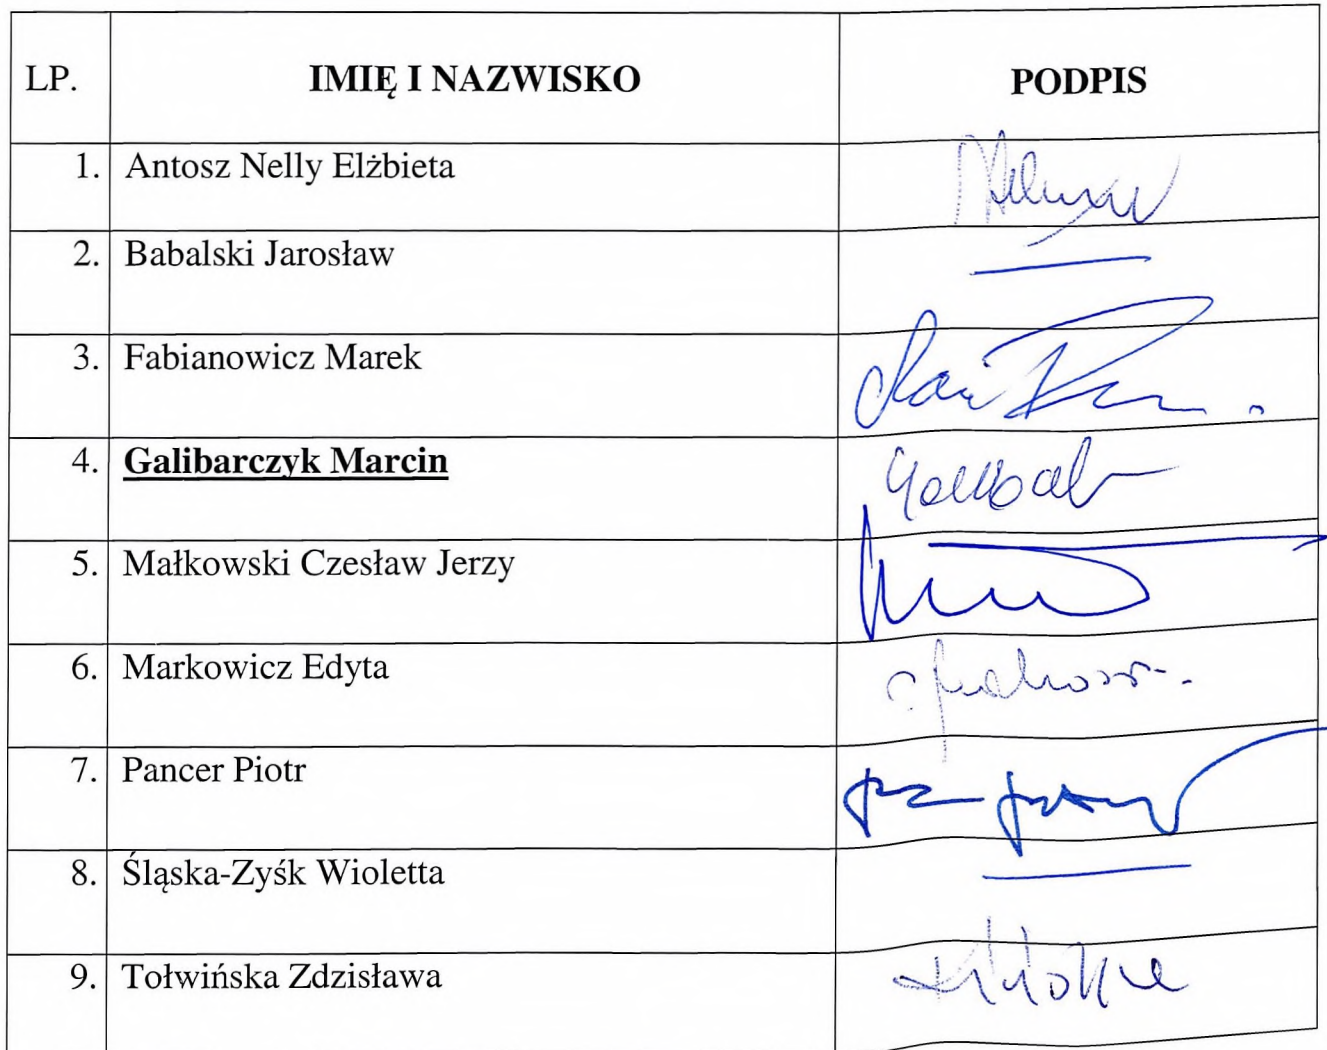 LP. IMIĘ I NAZWISKO PODPIS
1. Antosz Nelly Elżbieta
2. Babalski Jarosław
3. Fabianowicz Marek
4. Galibarczyk Marcin
5. Małkowski Czesław Jerzy
6. Markowicz Edyta
7. Pancer Piotr
8. Śląska-Zyśk Wioletta
9. Tołwińska Zdzisława